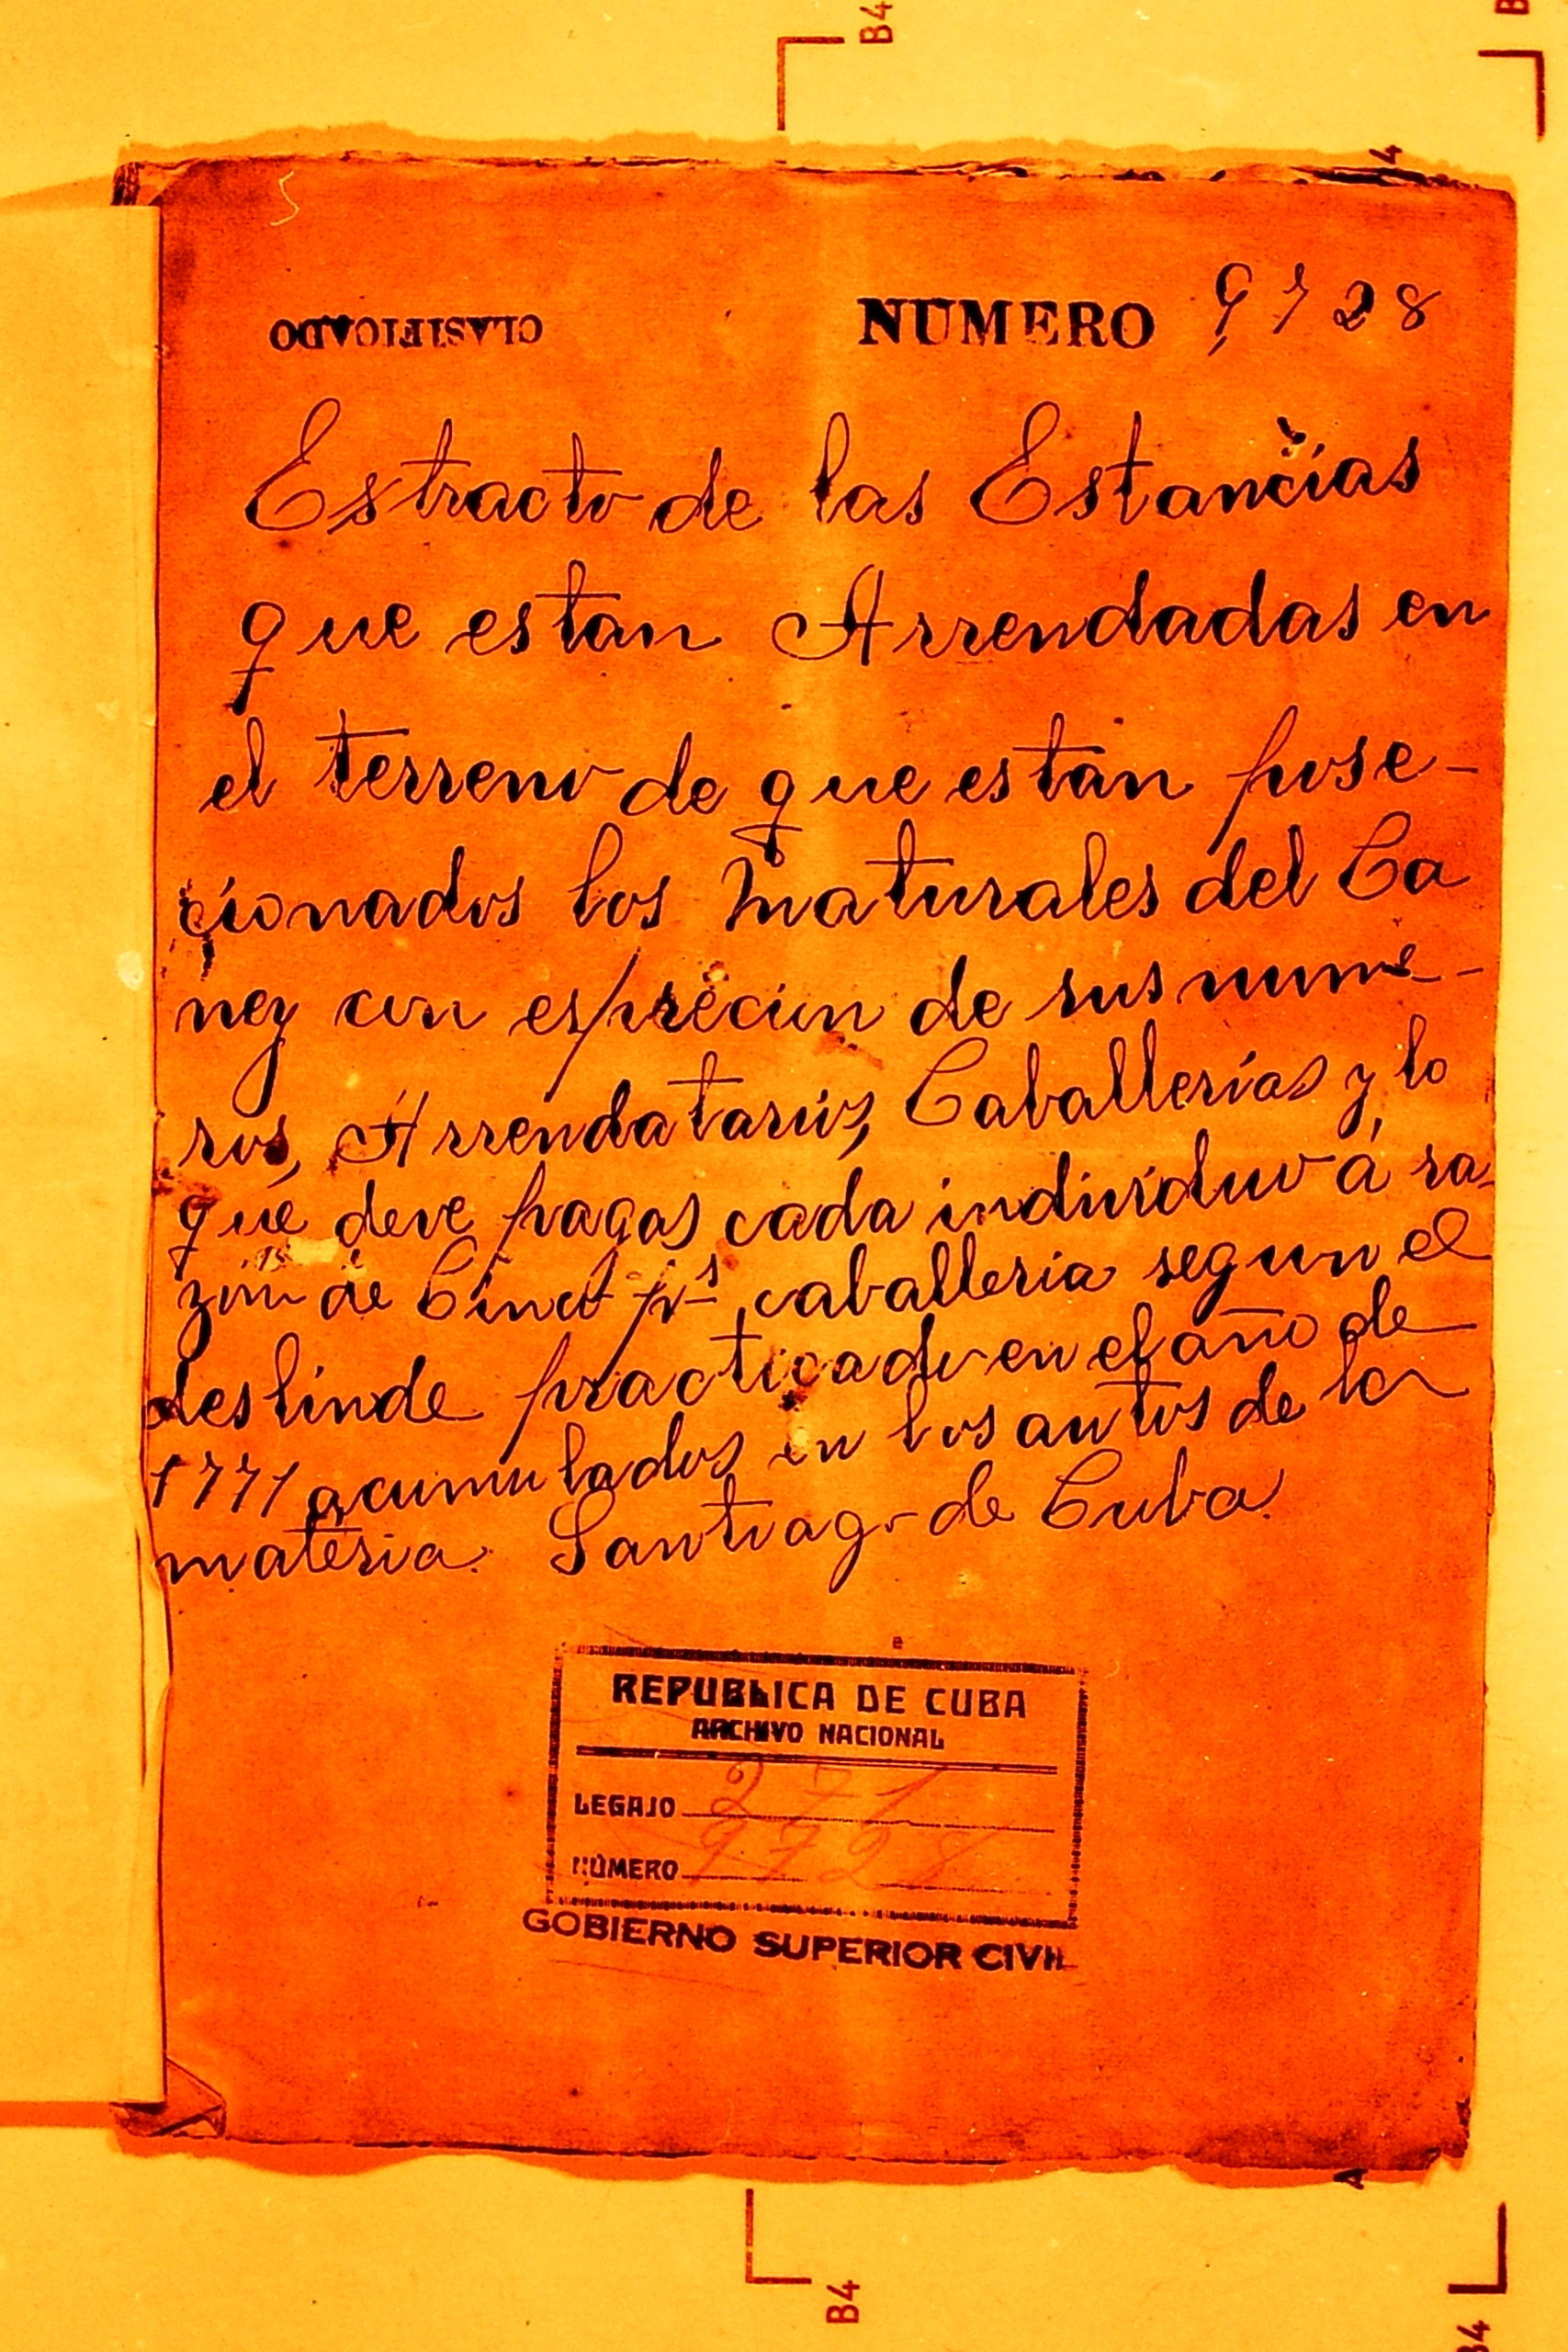 B4
CLASIFICADO
NUMERO 9728
Estracto de las Estancias
que estan Arrendadas en
el terreno de que están pose-
cionados los naturales del Ca
ney con espreción de sus núme-
ros, Arrendatarios, Caballerías y, lo
que deve pagar cada individuo á ra-
zón de Cinco ps caballeria segun el
deslinde practicado en el año de
1771 acumulados en los autos de la
materia. Santiago de Cuba.
REPUBLICA DE CUBA
ARCHIVO NACIONAL
LEGAJO 271
NÚMERO 9728
GOBIERNO SUPERIOR CIVIL
B4